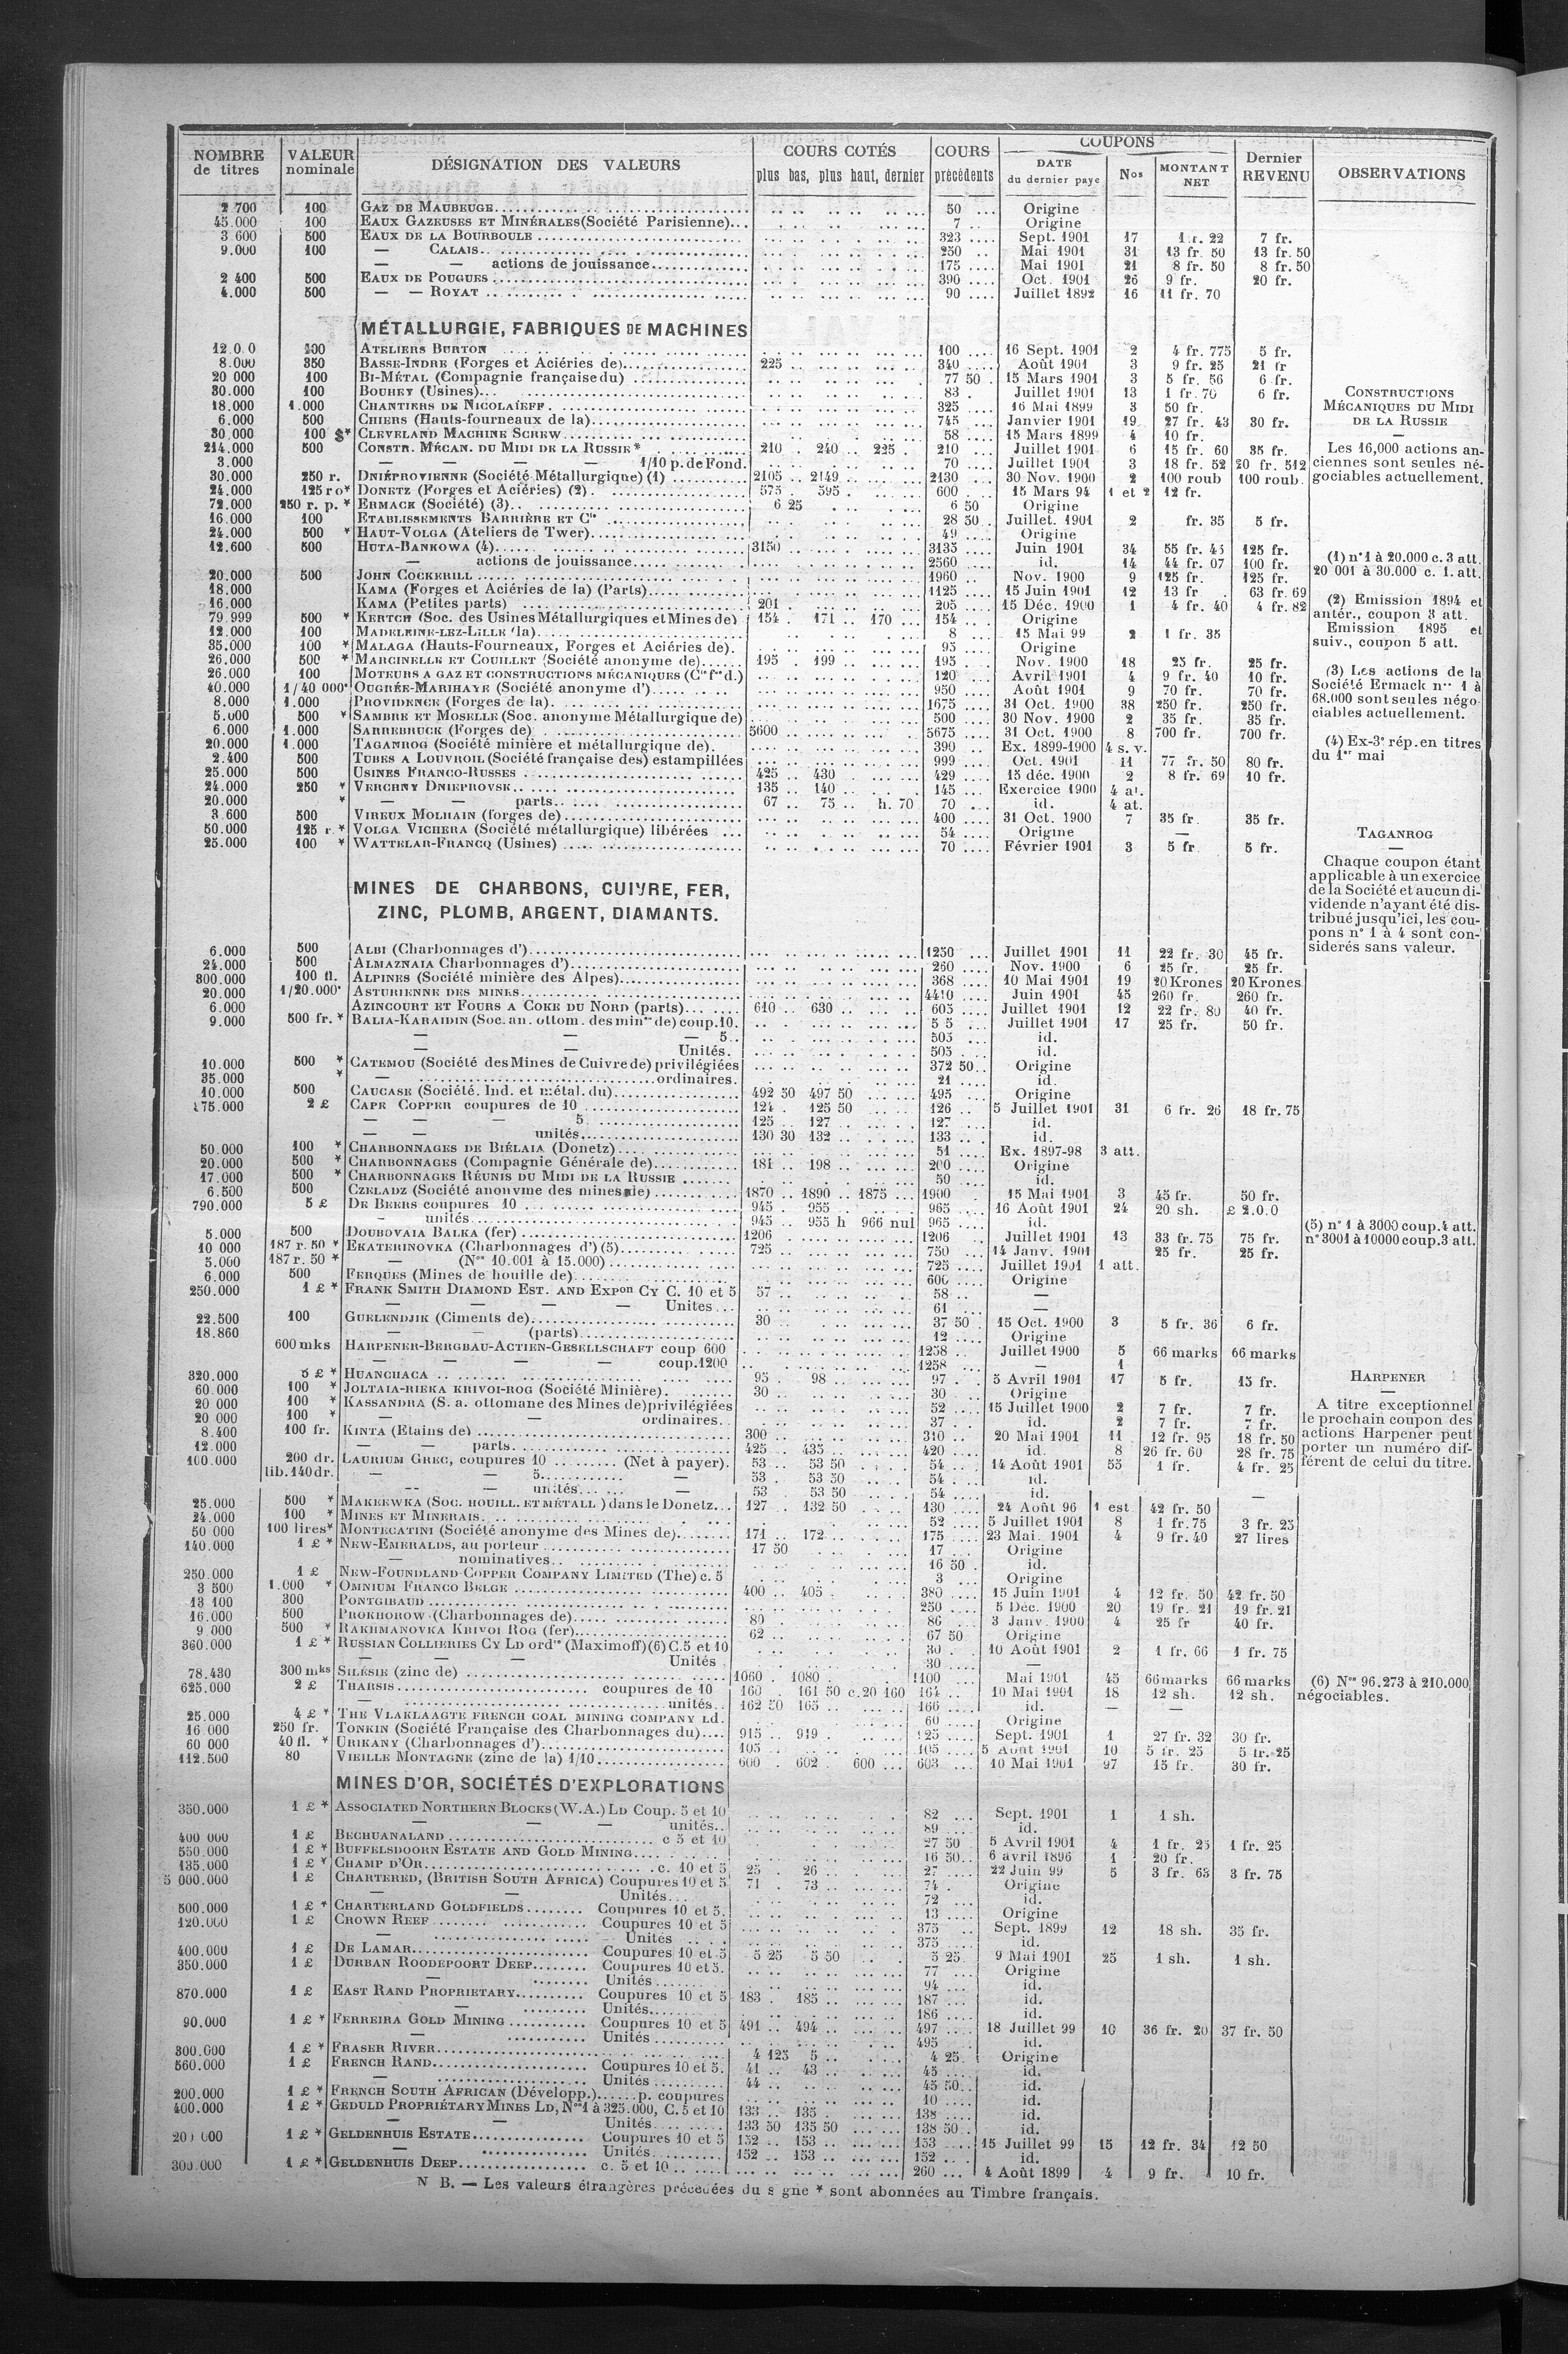 NOMBRE de titres | VALEUR nominale | DÉSIGNATION DES VALEURS | COURS COTÉS plus bas, plus haut, dernier | COURS précédents | COUPONS DATE du dernier payé | Nos | MONTANT NET | Dernier REVENU | OBSERVATIONS
2 700 100 GAZ DE MAUBEUGE 50 Origine
45.000 100 EAUX GAZEUSES ET MINÉRALES (Société Parisienne) 7 Origine
3 600 500 EAUX DE LA BOURBOULE 323 Sept. 1901 17 22 7 fr.
9.000 100 — CALAIS 250 Mai 1901 31 13 fr. 50 13 fr. 50
— — actions de jouissance 175 Mai 1901 21 8 fr. 50 8 fr. 50
2 400 500 EAUX DE POUGUES 390 Oct. 1901 26 9 fr. 20 fr.
4.000 500 — — ROYAT 90 Juillet 1892 16 11 fr. 70
MÉTALLURGIE, FABRIQUES DE MACHINES
ATELIERS BURTON 100 16 Sept. 1901 2 4 fr. 775 5 fr.
8.000 350 BASSE-INDRE (Forges et Aciéries de) 225 340 Août 1901 3 9 fr. 25 21 fr
20 000 100 BI-MÉTAL (Compagnie française du) 77 50 15 Mars 1901 3 5 fr. 56 6 fr.
30.000 100 BOUHEY (Usines) 83 Juillet 1901 13 1 fr. 70 6 fr.
18.000 1.000 CHANTIERS DE NICOLAÏEFF 325 16 Mai 1899 3 50 fr.
6.000 500 CHIERS (Hauts-fourneaux de la) 745 Janvier 1901 19 27 fr. 43 30 fr.
30.000 100 $* CLEVELAND MACHINE SCREW 58 15 Mars 1899 4 10 fr.
214.000 500 CONSTR. MÉCAN. DU MIDI DE LA RUSSIE* 210 240 225 210 Juillet 1901 6 15 fr. 60 35 fr.
3.000 — — — — 1/10 p. de Fond. 70 Juillet 1901 3 18 fr. 52 20 fr. 512
30.000 250 r. DNIÉPROVIENNE (Société Métallurgique) (1) 2105 2149 2130 30 Nov. 1900 2 100 roub 100 roub.
24.000 125 ro* DONETZ (Forges et Aciéries) (2) 575 595 600 15 Mars 94 1 et 2 12 fr.
72.000 250 r. p. * ERMACK (Société) (3) 6 25 6 50 Origine
16.000 100 ETABLISSEMENTS BARRIÈRE ET Cie 28 50 Juillet. 1901 2 fr. 35 5 fr.
24.000 500 * HAUT-VOLGA (Ateliers de Twer) 49 Origine
12.600 500 HUTA-BANKOWA (4) 3150 3135 Juin 1901 34 55 fr. 45 125 fr.
— actions de jouissance 2560 id. 14 44 fr. 07 100 fr.
20.000 500 JOHN COCKERILL 1960 Nov. 1900 9 125 fr. 125 fr.
18.000 KAMA (Forges et Aciéries de la) (Parts) 1125 15 Juin 1901 12 13 fr 63 fr. 69
16.000 KAMA (Petites parts) 201 205 15 Déc. 1900 1 4 fr. 40 4 fr. 82
79.999 500 * KERTCH (Soc. des Usines Métallurgiques et Mines de) 154 171 170 154 Origine
12.000 100 MADELEINE-LEZ-LILLE (la) 8 15 Mai 99 2 1 fr. 35
35.000 100 * MALAGA (Hauts-Fourneaux, Forges et Aciéries de) 95 Origine
26.000 500 * MARCINELLE ET COUILLET (Société anonyme de) 195 199 195 Nov. 1900 18 25 fr. 25 fr.
26.000 100 MOTEURS A GAZ ET CONSTRUCTIONS MÉCANIQUES (Cie fse d.) 120 Avril 1901 4 9 fr. 40 10 fr.
40.000 1/40 000e OUGRÉE-MARIHAYE (Société anonyme d') 950 Août 1901 9 70 fr. 70 fr.
8.000 1.000 PROVIDENCE (Forges de la) 1675 31 Oct. 1900 38 250 fr. 250 fr.
5.000 500 * SAMBRE ET MOSELLE (Soc. anonyme Métallurgique de) 500 30 Nov. 1900 2 35 fr. 35 fr.
6.000 1.000 SARREBRUCK (Forges de) 5600 5675 31 Oct. 1900 8 700 fr. 700 fr.
20.000 1.000 TAGANROG (Société minière et métallurgique de) 390 Ex. 1899-1900 4 s. v.
2.400 500 TUBES A LOUVROIL (Société française des) estampillées 999 Oct. 1901 11 77 fr. 50 80 fr.
25.000 500 USINES FRANCO-RUSSES 425 430 429 15 déc. 1900 2 8 fr. 69 10 fr.
24.000 250 * VERCHNY DNIEPROVSK 135 140 145 Exercice 1900 4 at.
20.000 * — — parts 67 75 h. 70 70 id. 4 at.
3.600 500 VIREUX MOLHAIN (forges de) 400 31 Oct. 1900 7 35 fr. 35 fr.
50.000 125 r.* VOLGA VICHERA (Société métallurgique) libérées 54 Origine —
25.000 100 * WATTELAR-FRANCQ (Usines) 70 Février 1901 3 5 fr 5 fr.
CONSTRUCTIONS
MÉCANIQUES DU MIDI
DE LA RUSSIE
Les 16,000 actions an-
ciennes sont seules né-
gociables actuellement.
(1) n° 1 à 20.000 c. 3 att.
20 001 à 30.000 c. 1. att.
(2) Emission 1894 et
antér., coupon 3 att.
Emission 1895 et
suiv., coupon 5 att.
(3) Les actions de la
Société Ermack nos 1 à
68.000 sont seules négo-
ciables actuellement.
(4) Ex-3e rép. en titres
du 1er mai
TAGANROG
Chaque coupon étant
applicable à un exercice
de la Société et aucun di-
vidende n'ayant été dis-
tribué jusqu'ici, les cou-
pons n° 1 à 4 sont con-
sidérés sans valeur.
MINES DE CHARBONS, CUIVRE, FER,
ZINC, PLOMB, ARGENT, DIAMANTS.
6.000 500 ALBI (Charbonnages d') 1250 Juillet 1901 11 22 fr. 30 45 fr.
24.000 500 ALMAZNAIA Charbonnages d') 260 Nov. 1900 6 25 fr. 25 fr.
300.000 100 fl. ALPINES (Société minière des Alpes) 368 10 Mai 1901 19 20 Krones 20 Krones
20.000 1/20.000e ASTURIENNE DES MINES 4410 Juin 1901 45 260 fr. 260 fr.
6.000 AZINCOURT ET FOURS A COKE DU NORD (parts) 610 630 605 Juillet 1901 12 22 fr. 80 40 fr.
9.000 500 fr. * BALIA-KARAIDIN (Soc. an. ottom. des mines de) coup. 10. 5 5 Juillet 1901 17 25 fr. 50 fr.
— — — 5 505 id.
— — Unités. 505 id.
10.000 500 * CATEMOU (Société des Mines de Cuivre de) privilégiées 372 50 Origine
35.000 * — ordinaires. 21 id.
10.000 500 CAUCASE (Société. Ind. et métal. du) 492 50 497 50 495 Origine
175.000 2 £ CAPE COPPER coupures de 10 124 125 50 126 5 Juillet 1901 31 6 fr. 26 18 fr. 75
— — — 5 125 127 127 id.
— — unités 130 30 132 133 id.
50.000 100 * CHARBONNAGES DE BIÉLAIA (Donetz) 51 Ex. 1897-98 3 att.
20.000 500 * CHARBONNAGES (Compagnie Générale de) 181 198 200 Origine
17.000 500 * CHARBONNAGES RÉUNIS DU MIDI DE LA RUSSIE 50 id.
6.500 500 CZELADZ (Société anonyme des mines de) 1870 1890 1875 1900 15 Mai 1901 3 45 fr. 50 fr.
790.000 5 £ DE BEERS coupures 10 945 955 965 16 Août 1901 24 20 sh. £ 2.0.0
— unités 945 955 h 966 nul 965 id.
5.000 500 DOUBOVAIA BALKA (fer) 1206 1206 Juillet 1901 13 33 fr. 75 75 fr.
10 000 187 r. 50 * EKATERINOVKA (Charbonnages d') (5) 725 750 14 Janv. 1901 25 fr. 25 fr.
5.000 187 r. 50 * — (Nos 10.001 à 15.000) 725 Juillet 1901 1 att.
6.000 500 FERQUES (Mines de houille de) 600 Origine
250.000 1 £ * FRANK SMITH DIAMOND EST. AND EXPon CY C. 10 et 5 57 58 —
— — — — Unites 61 —
22.500 100 GUELENDJIK (Ciments de) 30 37 50 15 Oct. 1900 3 5 fr. 36 6 fr.
18.860 — — (parts) 12 Origine
600 mks HARPENER-BERGBAU-ACTIEN-GESELLSCHAFT coup 600 1258 Juillet 1900 5 66 marks 66 marks
— — — — coup. 1200 1258 — 1
320.000 5 £ * HUANCHACA 95 98 97 5 Avril 1901 17 5 fr. 15 fr.
60.000 100 * JOLTAIA-RIEKA KRIVOI-ROG (Société Minière) 30 30 Origine
20 000 100 * KASSANDRA (S. a. ottomane des Mines de) privilégiées 52 15 Juillet 1900 2 7 fr. 7 fr.
20 000 100 * — — ordinaires 37 id. 2 7 fr. 7 fr.
8.400 100 fr. KINTA (Etains de) 300 310 20 Mai 1901 11 12 fr. 95 18 fr. 50
12.000 — — parts 425 435 420 id. 8 26 fr. 60 28 fr. 75
100.000 200 dr. LAURIUM GREC, coupures 10 (Net à payer). 53 53 50 54 14 Août 1901 55 1 fr. 4 fr. 25
lib. 140 dr. — — 5 — 53 53 50 54 id.
— — unités — 53 53 50 54 id. —
25.000 500 * MAKEEWKA (SOC. HOUILL. ET MÉTALL.) dans le Donetz 127 132 50 130 24 Août 96 1 est. 42 fr. 50
24.000 100 * MINES ET MINERAIS 52 5 Juillet 1901 8 1 fr. 75 3 fr. 25
50 000 100 lires* MONTECATINI (Société anonyme des Mines de) 171 172 175 23 Mai. 1901 4 9 fr. 40 27 lires
140.000 1 £ * NEW-EMERALDS, au porteur 17 50 17 Origine
— nominatives 16 50 id.
250.000 1 £ NEW-FOUNDLAND COPPER COMPANY LIMITED (The) c. 5 3 Origine
3 500 1.000 * OMNIUM FRANCO BELGE 400 405 380 15 Juin 1901 4 12 fr. 50 42 fr. 50
13 100 300 PONTGIBAUD 250 5 Déc. 1900 20 19 fr. 21 19 fr. 21
16.000 500 PROKHOROW (Charbonnages de) 80 86 3 Janv. 1900 4 25 fr 40 fr.
9 000 500 * RAKHMANOVKA KRIVOI ROG (fer) 62 67 50 Origine
360.000 1 £ * RUSSIAN COLLIERIES CY LD ordres (Maximoff) (6) C. 5 et 10 30 10 Août 1901 2 1 fr. 66 1 fr. 75
— — — Unités 30 —
78.430 300 mks SILÉSIE (zinc de) 1060 1080 1100 Mai 1901 45 66 marks 66 marks
625.000 2 £ THARSIS coupures de 10 160 161 50 c. 20 160 164 10 Mai 1901 18 12 sh. 12 sh.
— unités 162 50 165 166 id. — —
25.000 4 £ * THE VLAKLAAGTE FRENCH COAL MINING COMPANY Ld. 60 Origine
16 000 250 fr. TONKIN (Société Française des Charbonnages du) 915 919 925 Sept. 1901 1 27 fr. 32 30 fr.
60 000 40 fl. * URIKANY (Charbonnages d') 105 105 5 Août 1901 10 5 fr. 25 5 fr. 25
112.500 80 VIEILLE MONTAGNE (zinc de la) 1/10 600 602 600 603 10 Mai 1901 97 15 fr. 30 fr.
(5) n° 1 à 3000 coup. 4 att.
n° 3001 à 10000 coup. 3 att.
HARPENER
A titre exceptionnel
le prochain coupon des
actions Harpener peut
porter un numéro dif-
férent de celui du titre.
(6) Nos 96.273 à 210.000
négociables.
MINES D'OR, SOCIÉTÉS D'EXPLORATIONS
350.000 1 £ * ASSOCIATED NORTHERN BLOCKS (W.A.) LD Coup. 5 et 10 82 Sept. 1901 1 1 sh.
— — — unités 89 id.
400 000 1 £ BECHUANALAND c 5 et 10 27 50 5 Avril 1901 4 1 fr. 25 1 fr. 25
550.000 1 £ * BUFFELSDOORN ESTATE AND GOLD MINING 16 50 6 avril 1896 1 20 fr.
135.000 1 £ * CHAMP D'OR c. 10 et 5 25 26 27 22 Juin 99 5 3 fr. 63 3 fr. 75
5 000.000 1 £ CHARTERED, (BRITISH SOUTH AFRICA) Coupures 10 et 5 71 73 74 Origine
— — Unités 72 id.
500.000 1 £ * CHARTERLAND GOLDFIELDS Coupures 10 et 5. 13 Origine
120.000 1 £ CROWN REEF Coupures 10 et 5 375 Sept. 1899 12 18 sh. 35 fr.
— Unités 375 id.
400.000 1 £ DE LAMAR Coupures 10 et 5 5 25 5 50 5 25 9 Mai 1901 25 1 sh. 1 sh.
350.000 1 £ DURBAN ROODEPOORT DEEP Coupures 10 et 5. 77 Origine
— Unités 94 id.
870.000 1 £ EAST RAND PROPRIETARY Coupures 10 et 5 183 185 187 id.
— Unités 186 id.
90.000 1 £ * FERREIRA GOLD MINING Coupures 10 et 5 491 494 497 18 Juillet 99 10 36 fr. 20 37 fr. 50
— Unités 495 id.
300.000 1 £ * FRASER RIVER 4 125 5 4 25 Origine
560.000 1 £ FRENCH RAND Coupures 10 et 5. 41 43 45 id.
— Unités 44 45 50 id.
200.000 1 £ * FRENCH SOUTH AFRICAN (Développ.) p. coupures 10 id.
400.000 1 £ * GEDULD PROPRIÉTARY MINES LD, Nos 1 à 325.000, C. 5 et 10 133 135 138 id.
— — Unités 133 50 135 50 138 50 id.
200 000 1 £ * GELDENHUIS ESTATE Coupures 10 et 5 152 153 153 15 Juillet 99 15 12 fr. 34 12 50
— Unités 152 153 152 id.
300.000 1 £ * GELDENHUIS DEEP c. 5 et 10 260 4 Août 1899 4 9 fr. 10 fr.
N B. — Les valeurs étrangères précédées du signe * sont abonnées au Timbre français.